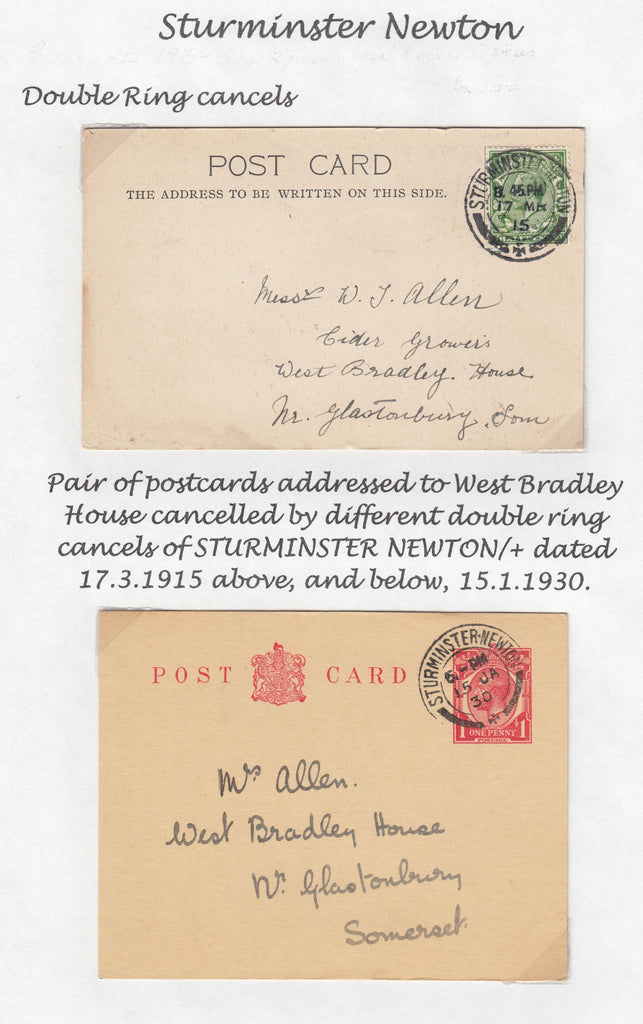 Sturminster Newton
Double Ring cancels
POST CARD
THE ADDRESS TO BE WRITTEN ON THIS SIDE.
STURMINSTER NEWTON
8.45 PM
17 MR
15
Messrs W. J. Allen
Cider Growers
West Bradley. House
Nr. Glastonbury. Som
Pair of postcards addressed to West Bradley
House cancelled by different double ring
cancels of STURMINSTER NEWTON/+ dated
17.3.1915 above, and below, 15.1.1930.
POST CARD
STURMINSTER·NEWTON
6 - PM
15 JA
30
1 ONE PENNY 1
POSTAGE
Mrs Allen.
West Bradley House
Nr. Glastonbury
Somerset.